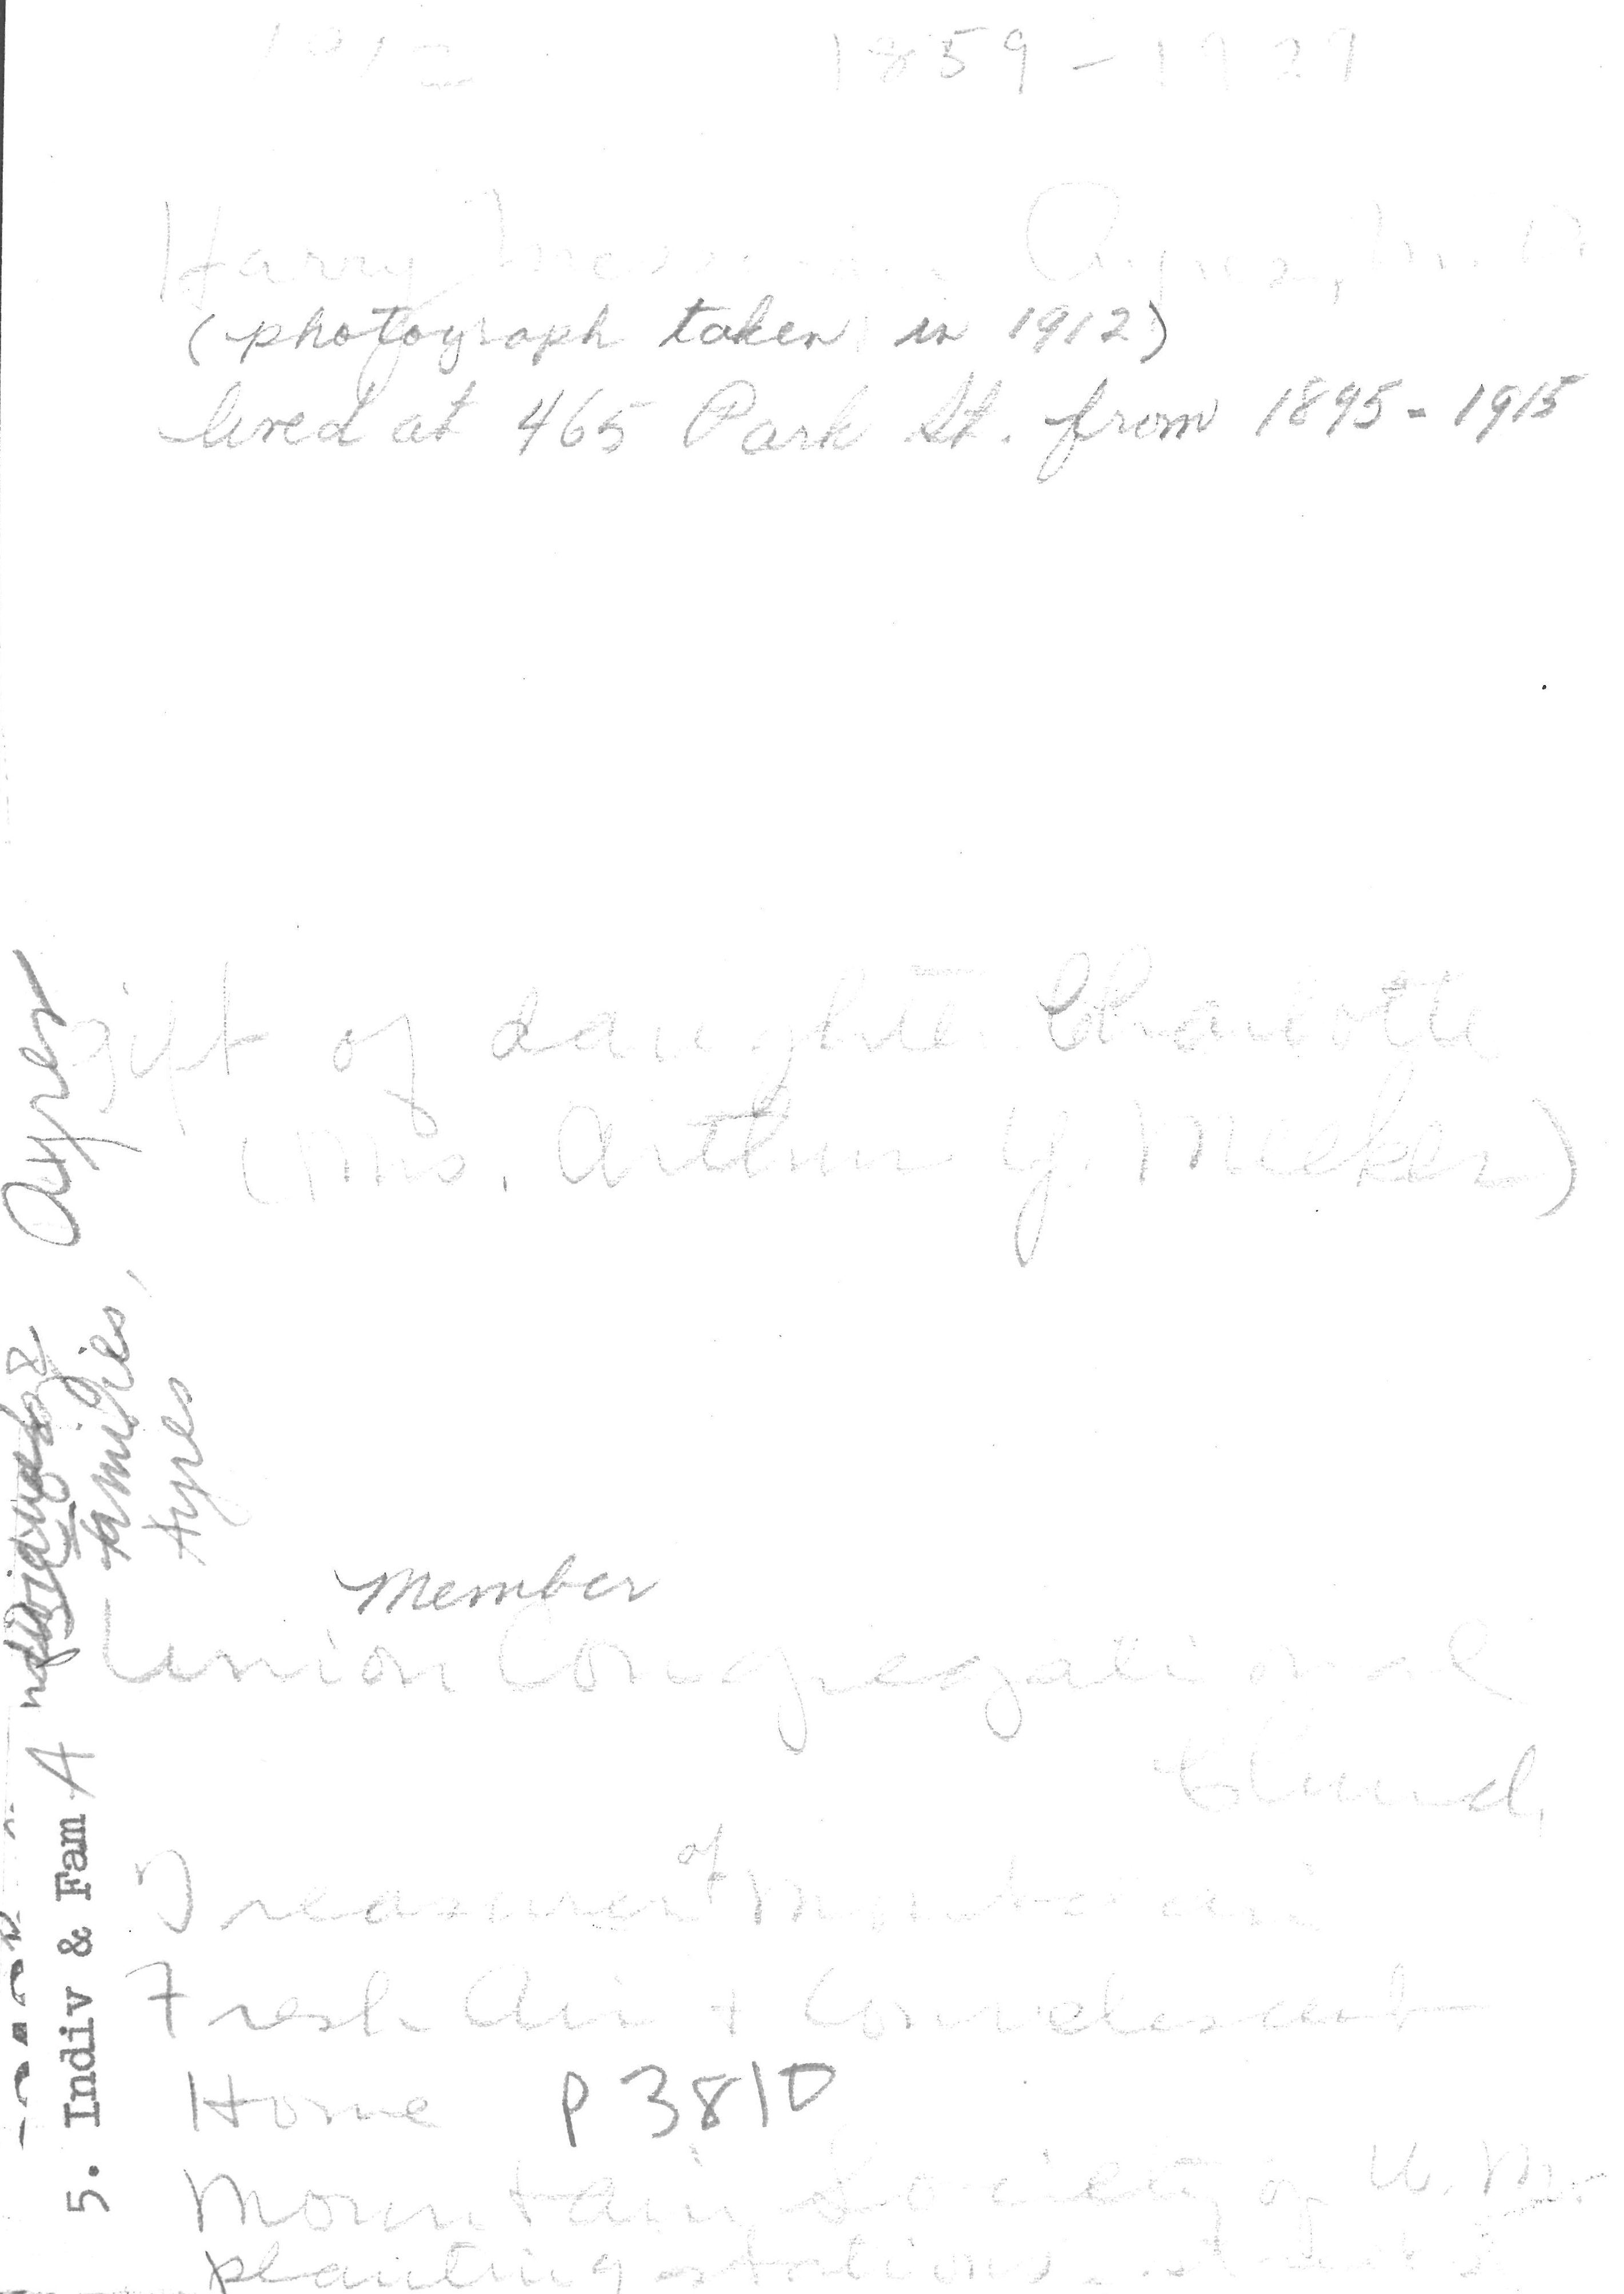 1912 1859-1929
Harry Ayres, M.D
(photograph taken in 1912)
lived at 465 Park St. from 1895-1915
gift of daughter Charlotte
(Mrs. Arthur Y. Meeker)
Member
Union Congregational
Church,
of
Treasurer Mountain
Fresh Air + Convalescent
Home P 3810
Mountain Society of U. M.
planting stations
5. Indiv & Fam A
Ayres
Families,